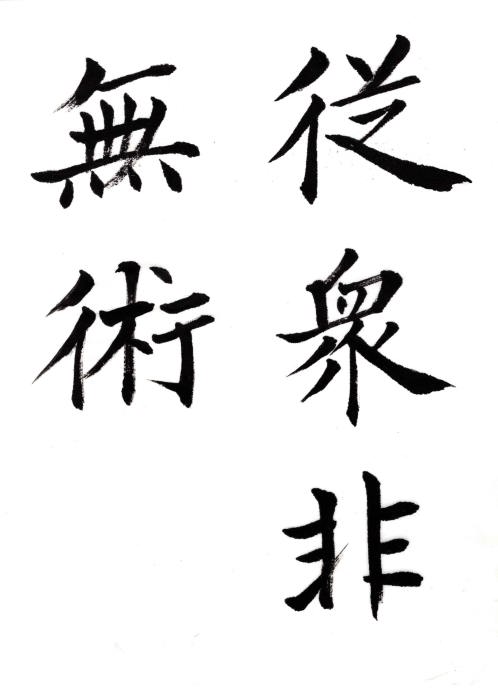 役衆非
無術